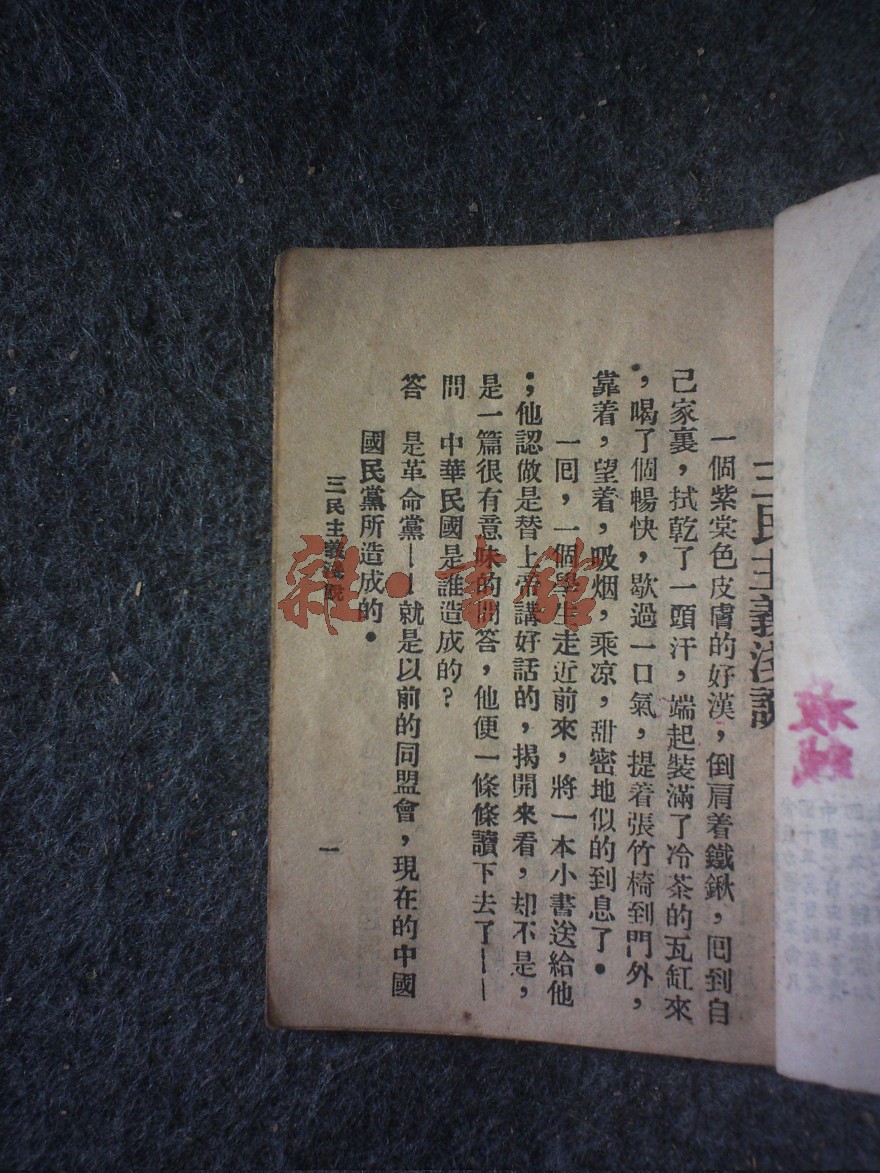 三民主義淺說
一個紫棠色皮膚的好漢，倒肩着鐵鍬，囘到自
己家裏，拭乾了一頭汗，端起裝滿了冷茶的瓦缸來
，喝了個暢快，歇過一口氣，提着張竹椅到門外，
靠着，望着，吸烟，乘凉，甜密地似的到息了。
一囘，一個學生走近前來，將一本小書送給他
；他認做是替上帝講好話的，揭開來看，却不是，
是一篇很有意味的問答，他便一條條讀下去了——
問　中華民國是誰造成的？
答　是革命黨——就是以前的同盟會，現在的中國
國民黨所造成的。
三民主義淺說
一
雜·書館